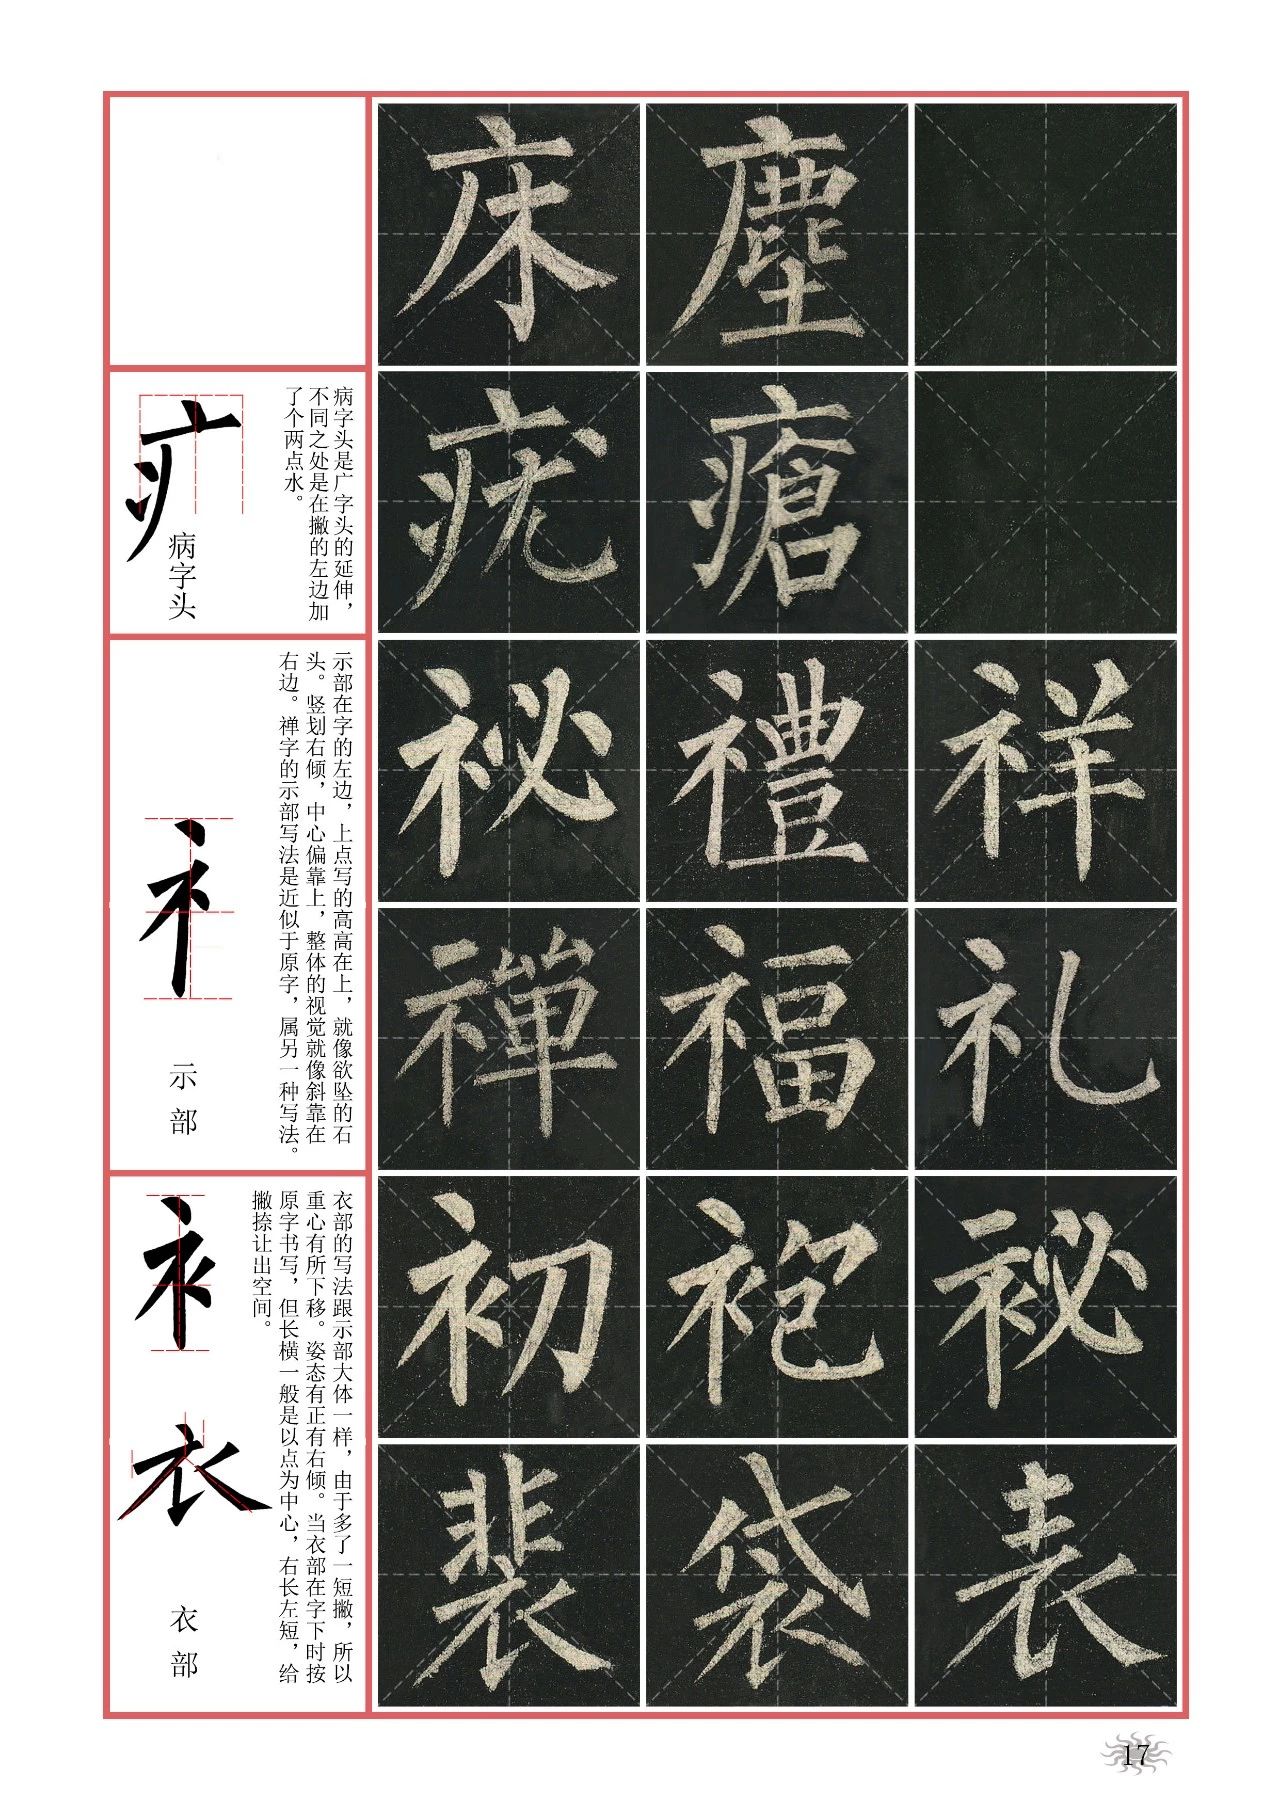 床塵
病字头是广字头的延伸，
不同之处是在撇的左边加
了个两点水。
疒
病字头
疣瘡
示部在字的左边，上点写的高高在上，就像欲坠的石
头。竖划右倾，中心偏靠上，整体的视觉就像斜靠在
右边。禅字的示部写法是近似于原字，属另一种写法。
礻
示部
祕禮祥
禪福礼
衣部的写法跟示部大体一样，由于多了一短撇，所以
重心有所下移。姿态有正有右倾。当衣部在字下时按
原字书写，但长横一般是以点为中心，右长左短，给
撇捺让出空间。
衤
衣
衣部
初袍袐
裴袋表
17